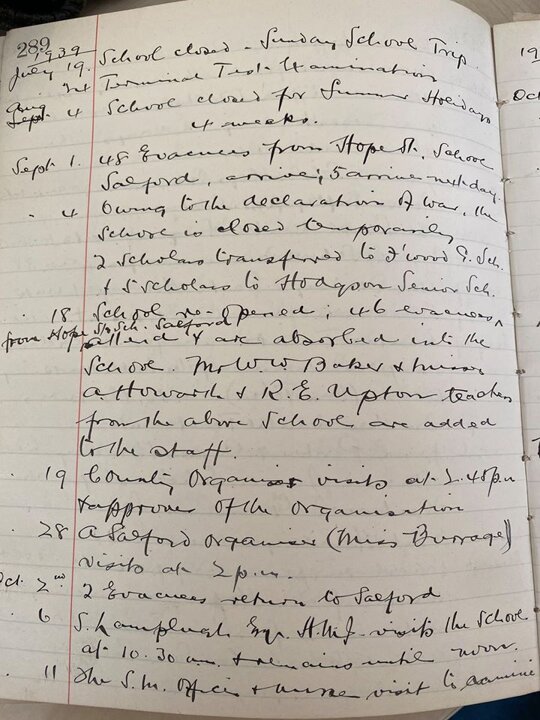 289
1939
July 19. School closed - Sunday School Trip.
24 Terminal Test Examination
Aug Sept. 4 School closed for Summer Holidays
4 weeks.
Sept. 1. 48 Evacuees from Hope St. School
Salford, arrive; 5 arrive next day.
" 4 Owing to the declaration of war, the
School is closed temporarily
2 scholars transferred to F'wood School Sch.
& 5 scholars to Hodgson Senior Sch.
" 18 School re-opened; 46 evacuees
from Hope St. Sch. Salford
attend & are absorbed into the
School. Mr W. W. Baker & Misses
A Howarth & R. E. Upton teachers
from the above School are added
to the staff.
" 19 County Organiser visits at 2.45 p.m
& approves of the organisation
" 28 A Salford organiser (Miss Burrage)
visits at 2 p.m.
Oct. 2nd 2 Evacuees return to Salford
6 S. Lamplugh Esqr. H.M.I. visits the School
at 10.30 am. & remains until noon.
" 11 The S.M. Officer & nurse visit to examine
19
Oct